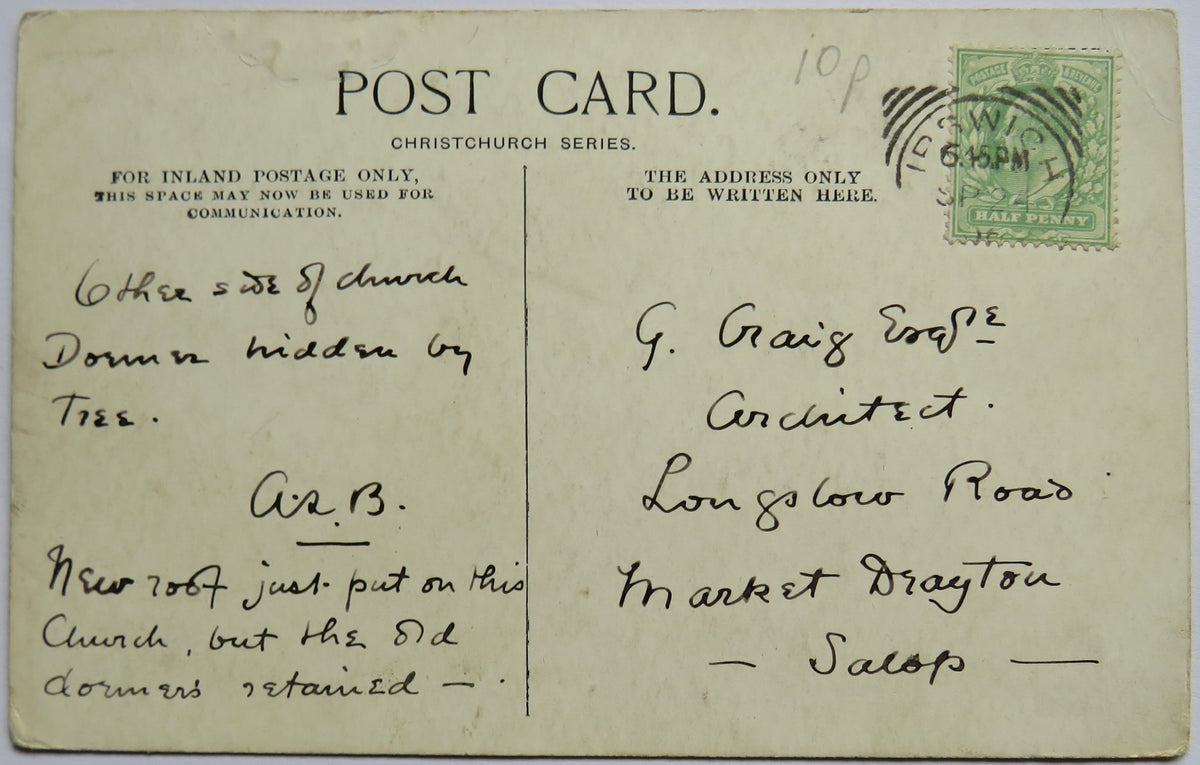 POST CARD.
CHRISTCHURCH SERIES.
10p
FOR INLAND POSTAGE ONLY,
THIS SPACE MAY NOW BE USED FOR
COMMUNICATION.
THE ADDRESS ONLY
TO BE WRITTEN HERE.
POSTAGE & REVENUE
IPSWICH
6.45.PM
SP 24
HALF PENNY
Other side of church
Dormer hidden by
Tree.
New roof just put on this
Church, but the old
dormers retained —.
G. Craig Esqre
Architect.
Longslow Road
Market Drayton
— Salop —